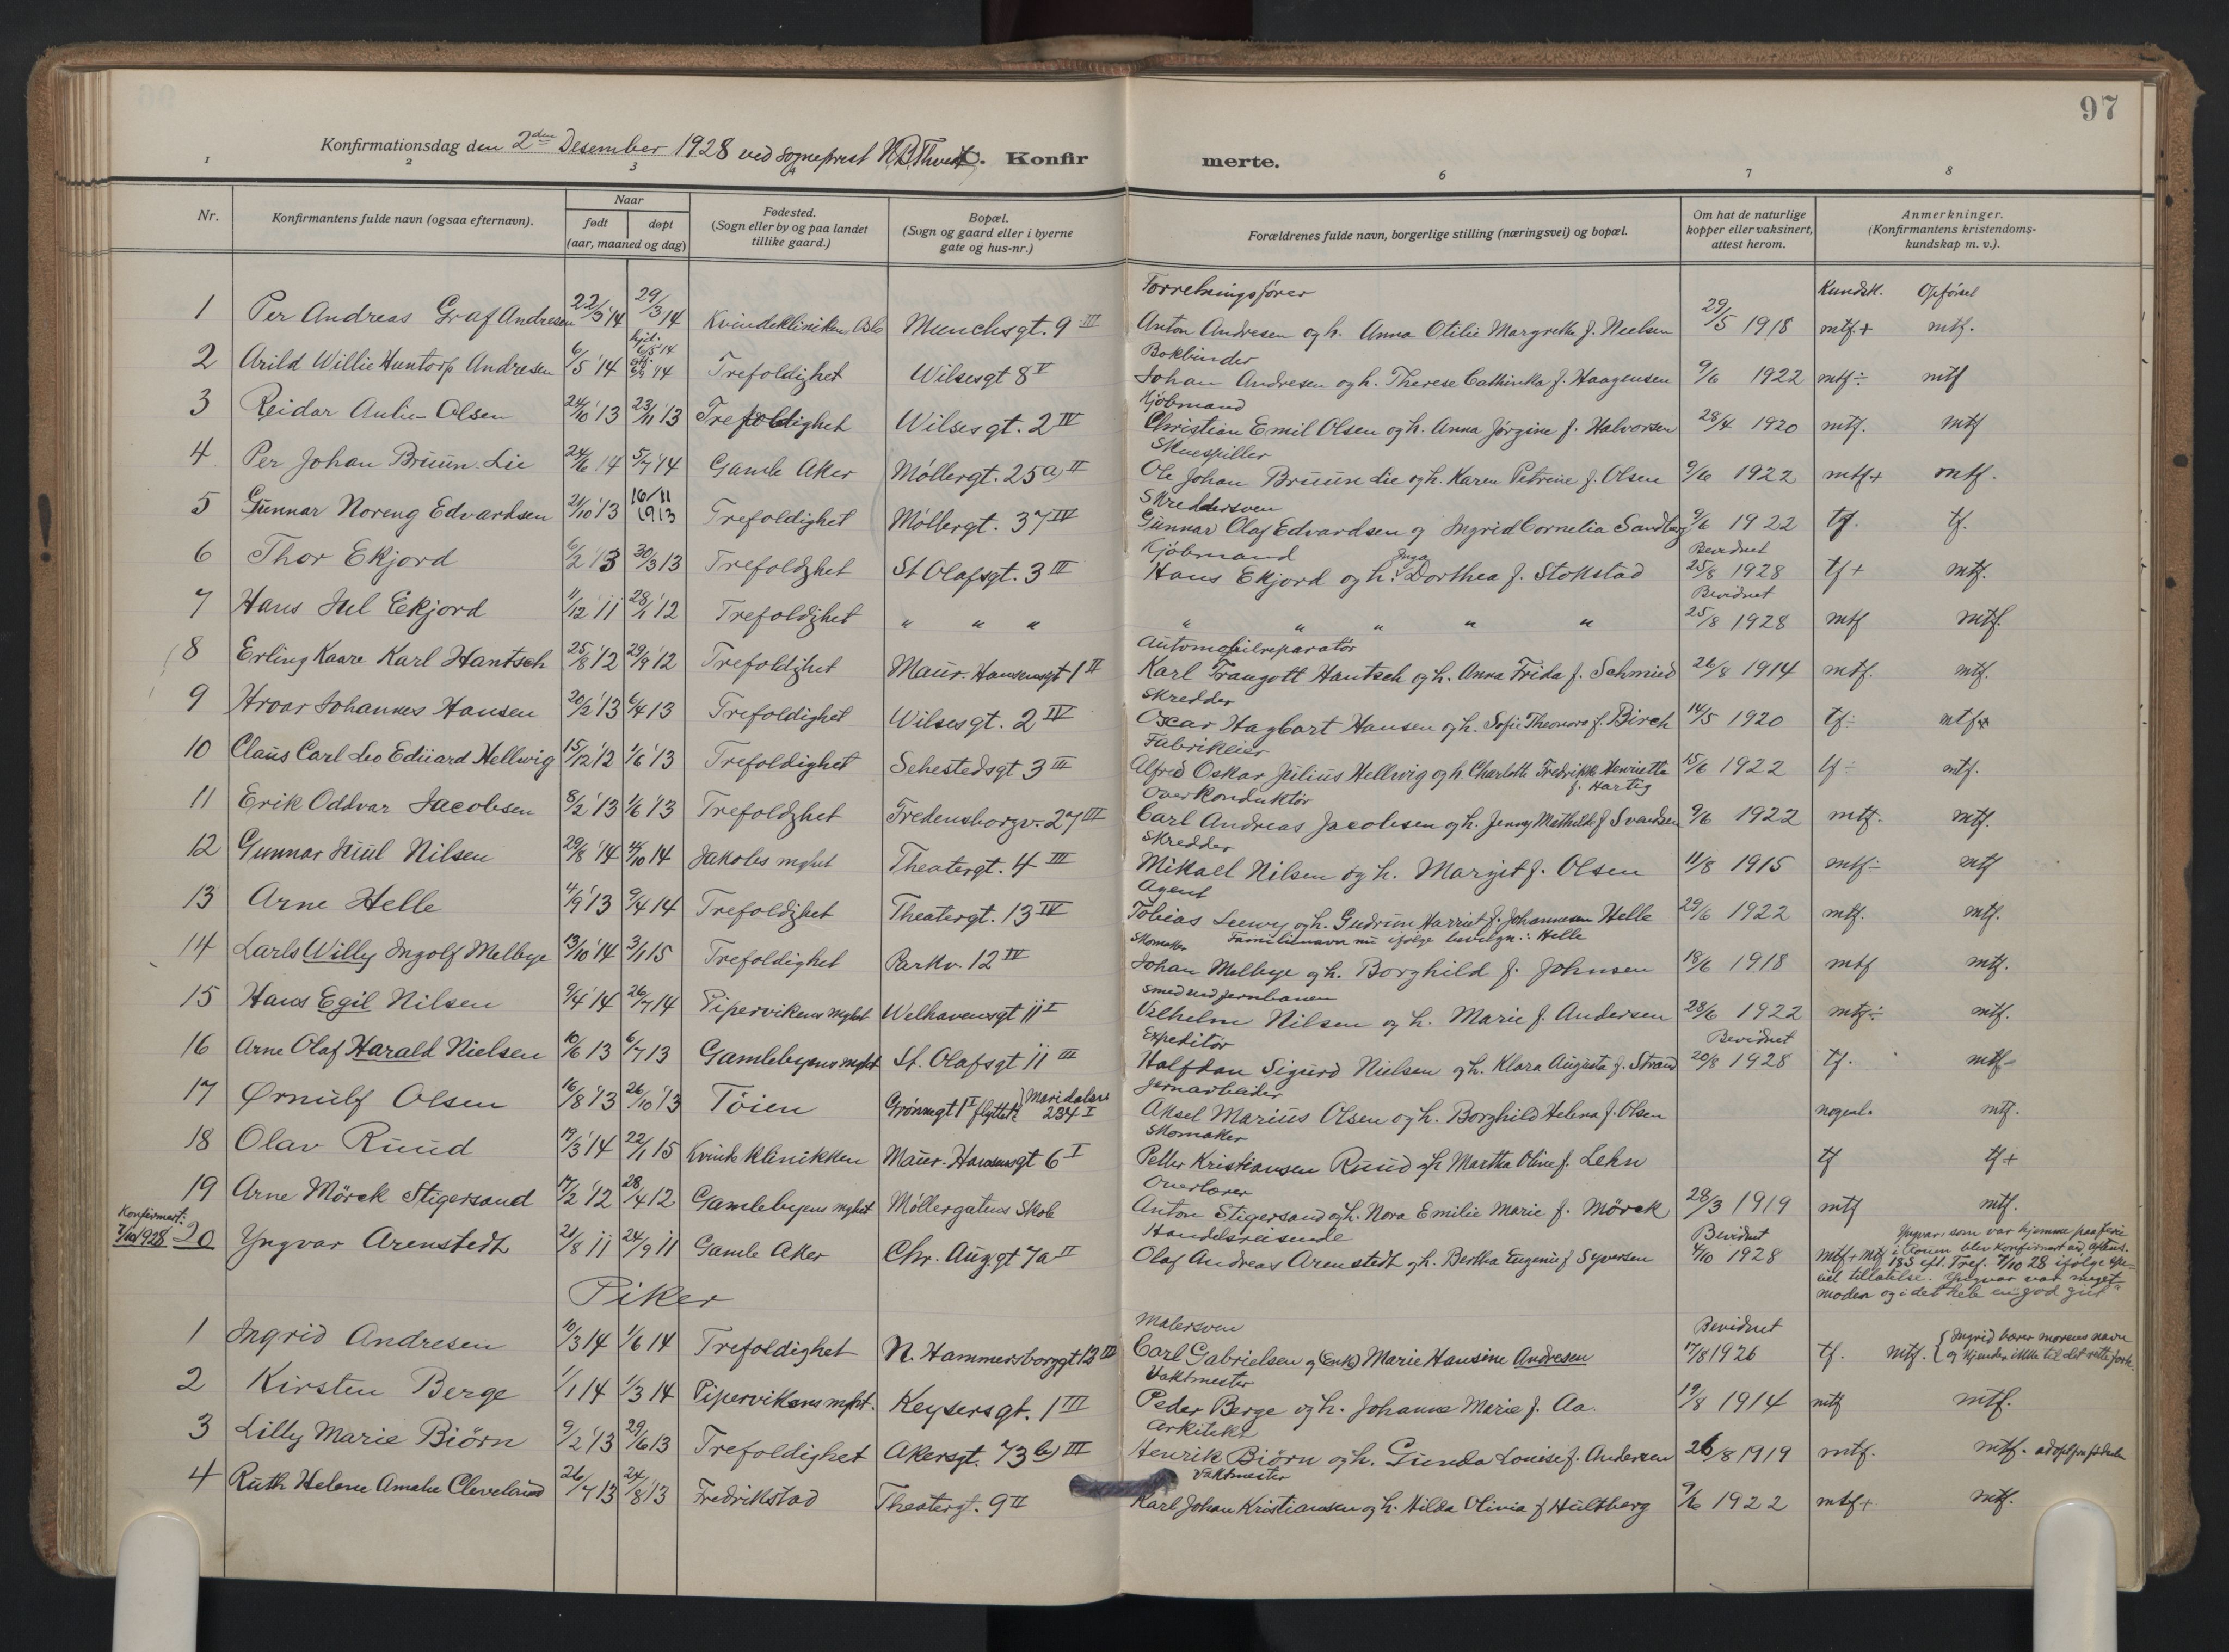 97
Konfirmationsdag den 2den Desember 1928 ved sogneprest C. Konfirmerte.
1 2 3 4 6 7 8
Nr. Konfirmantens fulde navn (ogsaa efternavn). Naar født døpt (aar, maaned og dag) Fødested. (Sogn eller by og paa landet tillike gaard.) Bopæl. (Sogn og gaard eller i byerne gate og hus-nr.) Forældrenes fulde navn, borgerlige stilling (næringsvei) og bopæl. Om hat de naturlige kopper eller vaksinert, attest herom. Anmerkninger. (Konfirmantens kristendoms-kundskap m. v.).
Forretningsfører Kundsk. Opførsel
1 Per Andreas Graf Andresen 22/3 '14 29/3 14 Kvindekliniken Oslo Munchsgt. 9 III Anton Andresen og h. Anna Otilie Margrethe f. Neelsen 29/5 1918 mtf.+ mtf.
Bokbinder
2 Arild Willie Huntorp Andresen 6/5 '14 Trefoldighet Wilsesgt 8 V Johan Andresen og h. Therese Cathinka f. Haagensen 9/6 1922 mtf÷ mtf
Kjøbmand
3 Reidar Aulie Olsen 24/10 '13 23/11 '13 Trefoldighet Wilsesgt. 2 IV Christian Emil Olsen og h. Anna Jørgine f. Halvorsen 28/4 1920 mtf. mtf
Skuespiller
4 Per Johan Bruun Lie 24/6 14 5/7 '14 Gamle Aker Møllergt. 25a) II Ole Johan Bruun Lie og h. Karen Petrine f. Olsen 9/6 1922 mtf+ mtf.
Skreddersven
5 Gunnar Noreng Edvardsen 21/10 '13 16/11 1913 Trefoldighet Møllergt. 37 IV Gunnar Olaf Edvardsen og Ingrid Cornelia Sandberg 9/6 1922 tf. tf.
Kjøbmand Bevidnet
6 Thor Ekjord 6/2 '13 30/3 13 Trefoldighet St Olafsgt. 3 III Hans Ekjord og h. Inga Dorthea f. Stokstad 25/8 1928 tf+ mtf.
Bevidnet
7 Hans Jul Ekjord 1/12 '11 28/1 '12 Trefoldighet " " " " " " " " 25/8 1928 mtf mtf.
Automobilreparatør
8 Erling Kaare Karl Hantsch 25/8 '12 29/9 '12 Trefoldighet Maur. Hansensgt 1 II Karl Traugott Hantsch og h. Anna Frida f. Schmied 26/8 1914 mtf. mtf.
Skredder
9 Hroar Johannes Hansen 20/2 '13 6/4 13 Trefoldighet Wilsesgt. 2 IV Oscar Hagbart Hansen og h. Sofie Theonora f. Birch 14/5 1920 tf÷ mtf
Fabrikeier
10 Claus Carl Leo Eduard Hellwig 15/12 12 1/6 '13 Trefoldighet Sehestedsgt 3 III Alfred Oskar Julius Hellwig og h. Charlotte Fredrikke Henriette f. Hartig 15/6 1922 tf÷ mtf.
Overkonduktør
11 Erik Oddvar Jacobsen 8/2 '13 1/6 '13 Trefoldighet Fredensborgv. 27 III Carl Andreas Jacobsen og h. Jenny Mathilde f Svendsen 9/6 1922 mtf. mtf.
Skredder
12 Gunnar Juul Nilsen 29/8 '14 4/10 14 Jakobs mghet Theatergt. 4 III Mikael Nilsen og h. Margit f. Olsen 11/8 1915 mtf÷ mtf
Agent
13 Arne Helle 4/9 '13 9/4 14 Trefoldighet Theatergt. 13 IV Tobias Leewy og h. Gudrun Harriet f. Johannesen Helle 29/6 1922 mtf. mtf.
Skomaker Familienavn nu ifølge bevilgn.: Helle
14 Larls Willy Ingolf Melbye 13/10 '14 3/1 15 Trefoldighet Parkv. 12 IV Johan Melbye og h. Borghild f. Johnsen 18/6 1918 mtf mtf.
Smed ved jernbanen
15 Hans Egil Nilsen 9/4 '14 26/7 14 Pipervikens mghet Welhavensgt 11 I Vilhelm Nilsen og h. Marie f. Andersen 28/6 1922 mtf÷ mtf.
Expeditør Bevidnet
16 Arne Olaf Harald Nielsen 10/6 13 6/7 13 Gamlebyens mghet St. Olafsgt 11 III Halfdan Sigurd Nielsen og h. Klara Augusta f. Strand 20/8 1928 tf. mtf
Jernarbeider
17 Ørnulf Olsen 16/8 '13 26/10 '13 Töien Grönnegt 1 I flyttet: Maridalsv 234 I Aksel Marius Olsen og h. Borghild Helena f. Olsen nogenl. mtf.
Skomaker
18 Olav Ruud 19/3 '14 22/1 15 Kvindeklinikken Maur. Hansensgt 6 I Petter Kristiansen Ruud og h Martha Oline f. Lehn tf tf+
Overlærer
19 Arne Mörck Stigersand 17/2 '12 28/4 12 Gamlebyens mghet Møllergatens Skole Anton Stigersand og h. Nora Emilie Marie f. Mörck 28/3 1919 mtf mtf.
Konfirmert: 7/10 1928 Handelsreisende Bevidnet
20 Yngvar Arenstedt 21/8 11 24/9 11 Gamle Aker Chr. Aug.gt 7a II Olaf Andreas Arenstedt og h. Bertha Eugenie f Syversen 4/10 1928 mtf+ mtf Yngvar, som var hjemme paa ferie
blev konfirmert
183 eft. Tref. 7/10 28 ifølge spe-
ciel tillatelse. Yngvar var meget
moden og i det hele en "god gut"
Piker
Malersven Bevidnet
1 Ingrid Andresen 10/3 14 1/6 14 Trefoldighet N. Hammersborggt 12 III Carl Gabrielsen og (Enke) Marie Hansine Andresen 17/8 1926 tf. mtf. { Ingrid bærer morens navn og kjender ikke til det rette forh.
Vaktmester
2 Kirsten Berge 1/1 14 1/3 14 Pipervikens mghet. Keysersgt. 1 III Peder Berge og h. Johanne Marie f. Aa. 19/8 1914 mtf mtf.
Arkitekt
3 Lilly Marie Biörn 9/2 '13 29/6 13 Trefoldighet Akersgt. 73 b) III Henrik Biörn og h. Gunda Louise f. Andersen 26/8 1919 mtf. mtf.
Vaktmester
4 Ruth Helene Amalie Cleveland 26/7 13 24/8 13 Fredrikstad Theatergt. 9 II Karl Johan Kristiansen og h. Hilda Olivia f Hultberg 9/6 1922 mtf+ mtf.